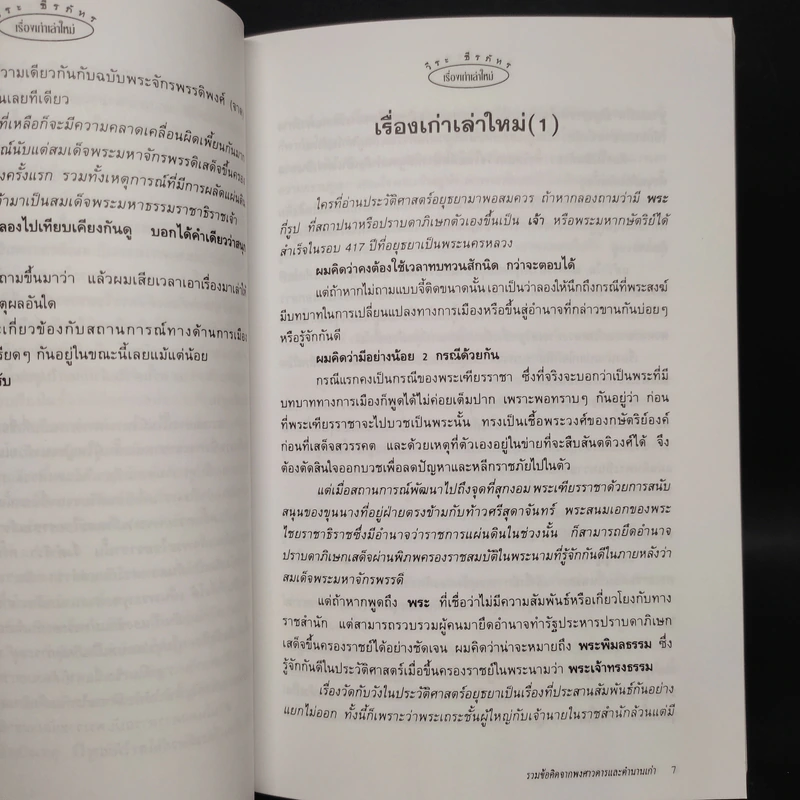 วีระ ธีรภัทร
เรื่องเก่าเล่าใหม่
ความเดียวกันกับฉบับพระจักรพรรดิพงศ์ (จาด)
นเลยทีเดียว
ที่เหลือก็จะมีความคลาดเคลื่อนผิดเพี้ยนกันมาก
ณ์นับแต่สมเด็จพระมหาจักรพรรดิเสด็จขึ้นครอง
งครั้งแรก รวมทั้งเหตุการณ์ที่มีการผลัดแผ่นดิน
ต้ามาเป็นสมเด็จพระมหาธรรมราชาธิราชเจ้า
ลองไปเทียบเคียงกันดู บอกได้คำเดียวว่าสนุก
ถามขึ้นมาว่า แล้วผมเสียเวลาเอาเรื่องมาเล่าให้
ตุผลอันใด
ะเกี่ยวข้องกับสถานการณ์ทางด้านการเมือง
รียดๆ กันอยู่ในขณะนี้เลยแม้แต่น้อย
รับ
วีระ ธีรภัทร
เรื่องเก่าเล่าใหม่
เรื่องเก่าเล่าใหม่(1)
ใครที่อ่านประวัติศาสตร์อยุธยามาพอสมควร ถ้าหากลองถามว่ามี พระ
กี่รูป ที่สถาปนาหรือปราบดาภิเษกตัวเองขึ้นเป็น เจ้า หรือพระมหากษัตริย์ได้
สำเร็จในรอบ 417 ปีที่อยุธยาเป็นพระนครหลวง
ผมคิดว่าคงต้องใช้เวลาทบทวนสักนิด กว่าจะตอบได้
แต่ถ้าหากไม่ถามแบบจี้ติดขนาดนั้น เอาเป็นว่าลองให้นึกถึงกรณีที่พระสงฆ์
มีบทบาทในการเปลี่ยนแปลงทางการเมืองหรือขึ้นสู่อำนาจที่กล่าวขานกันบ่อยๆ
หรือรู้จักกันดี
ผมคิดว่ามีอย่างน้อย 2 กรณีด้วยกัน
กรณีแรกคงเป็นกรณีของพระเฑียรราชา ซึ่งที่จริงจะบอกว่าเป็นพระที่มี
บทบาททางการเมืองก็พูดได้ไม่ค่อยเต็มปาก เพราะพอทราบๆ กันอยู่ว่า ก่อน
ที่พระเฑียรราชาจะไปบวชเป็นพระนั้น ทรงเป็นเชื้อพระวงศ์ของกษัตริย์องค์
ก่อนที่เสด็จสวรรคต และด้วยเหตุที่ตัวเองอยู่ในข่ายที่จะสืบสันตติวงศ์ได้ จึง
ต้องตัดสินใจออกบวชเพื่อลดปัญหาและหลีกราชภัยไปในตัว
แต่เมื่อสถานการณ์พัฒนาไปถึงจุดที่สุกงอม พระเฑียรราชาด้วยการสนับ
สนุนของขุนนางที่อยู่ฝ่ายตรงข้ามกับท้าวศรีสุดาจันทร์ พระสนมเอกของพระ
ไชยราชาธิราชซึ่งมีอำนาจว่าราชการแผ่นดินในช่วงนั้น ก็สามารถยึดอำนาจ
ปราบดาภิเษกเสด็จผ่านพิภพครองราชสมบัติในพระนามที่รู้จักกันดีในภายหลังว่า
สมเด็จพระมหาจักรพรรดิ
แต่ถ้าหากพูดถึง พระ ที่เชื่อว่าไม่มีความสัมพันธ์หรือเกี่ยวโยงกับทาง
ราชสำนัก แต่สามารถรวบรวมผู้คนมายึดอำนาจทำรัฐประหารปราบดาภิเษก
เสด็จขึ้นครองราชย์ได้อย่างชัดเจน ผมคิดว่าน่าจะหมายถึง พระพิมลธรรม ซึ่ง
รู้จักกันดีในประวัติศาสตร์เมื่อขึ้นครองราชย์ในพระนามว่า พระเจ้าทรงธรรม
เรื่องวัดกับวังในประวัติศาสตร์อยุธยาเป็นเรื่องที่ประสานสัมพันธ์กันอย่าง
แยกไม่ออก ทั้งนี้ก็เพราะว่าพระเถระชั้นผู้ใหญ่กับเจ้านายในราชสำนักล้วนแต่มี
รวมข้อคิดจากพงศาวดารและตำนานเก่า 7